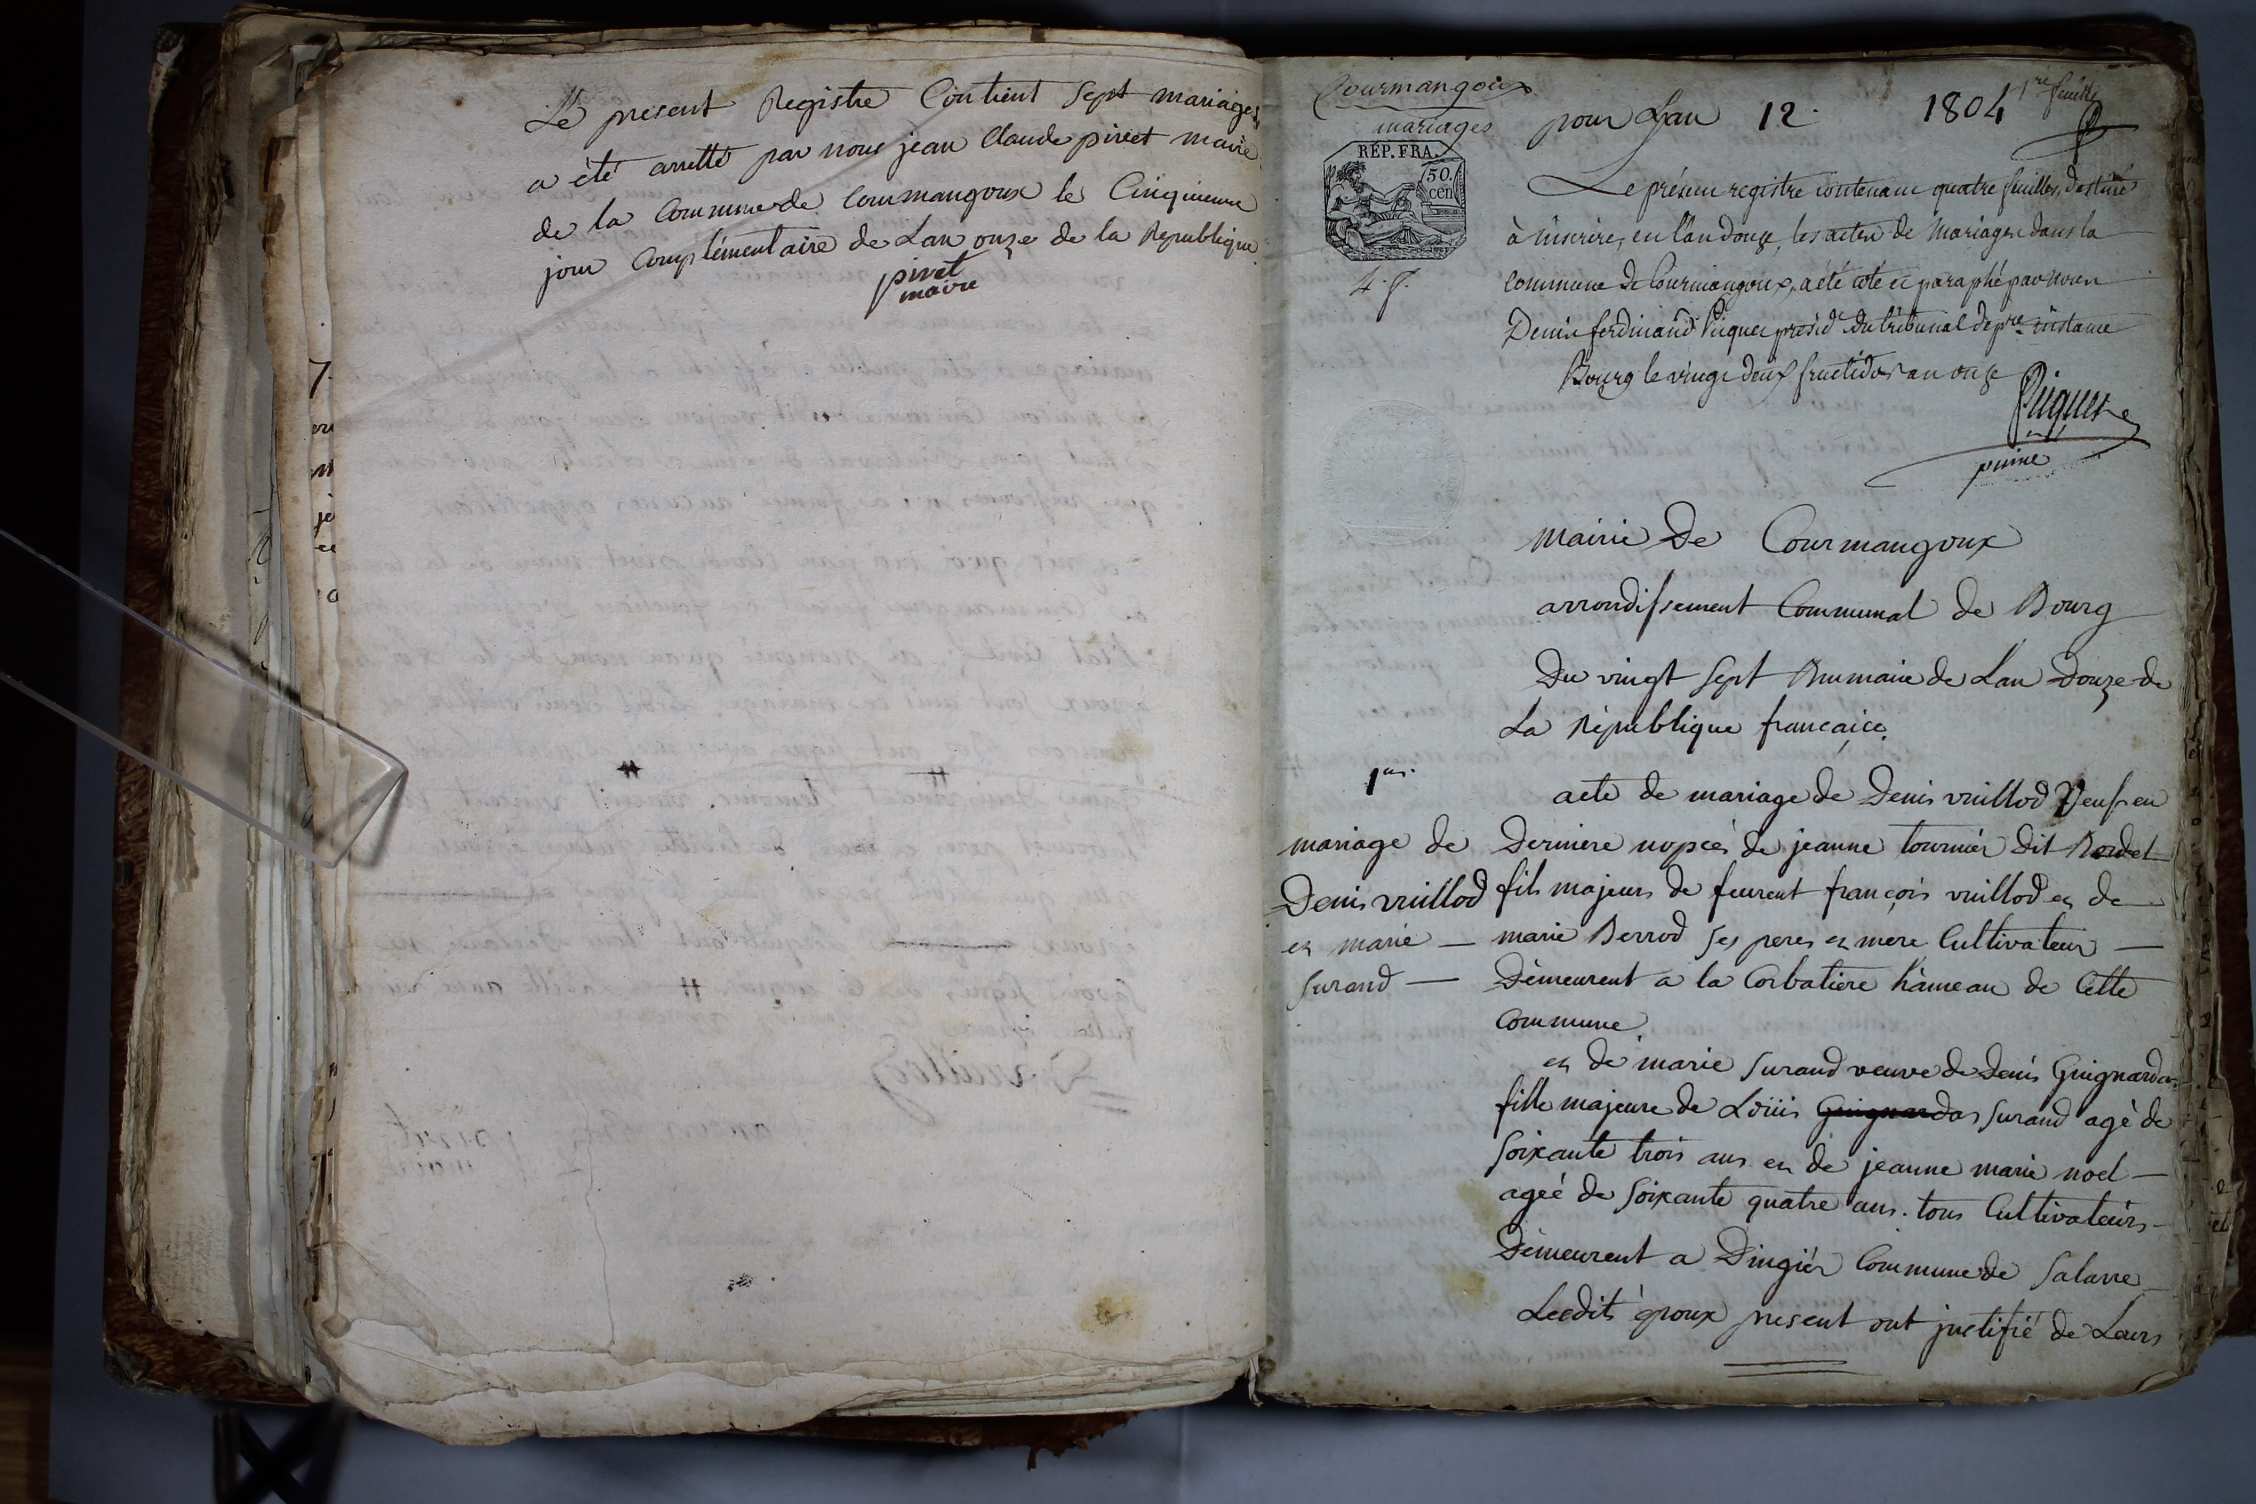 Le present Registre Contient Sept mariages
a été arretté par nous jean Claude pivet maire
de la Commune de Courmangoux le Cinquieme
jour Complémentaire de Lan onze de la Republique
pivet
maire
Courmangoux
mariages
pour Lan 12. 1804
1re feuille
RÉP. FRA.
50.
cen
4. f.
Le présent registre contenant quatre feuilles, destiné
à inscrire, en l'an douze, les actes de Mariages dans la
commune de Courmangoux, a été coté et paraphé par nous
Denis ferdinand Piquet présidt du tribunal de pre instance
Bourg le vingt deux fructidor an onze
Piquet
puiné
mairie De Courmangoux
arrondissement Communal de Bourg
Du vingt Sept Brumaire de Lan Douze de
La République françaice.
1er.
mariage de
Denis vuillod
et marie —
Surand —
acte de mariage de Denis vuillod Veuf en
Derniere nopces de jeanne tournier dit Bordet
fils majeur de feurent françois vuillod et de
marie Berrod Ses peres et mere Cultivateur —
Démeurent a la Corbatiere hâmeau de Cette
Commune
et de marie Surand veuve de Denis Guignardas
fille majeure de Loüis Guignardas Surand agé de
Soixante trois ans et de jeanne marie noel —
ageé de Soixante quatre ans. tous Cultivateurs
Démeurent a Dingiér Commune de Salavre
Lesdits époux present ont justifié de Leurs